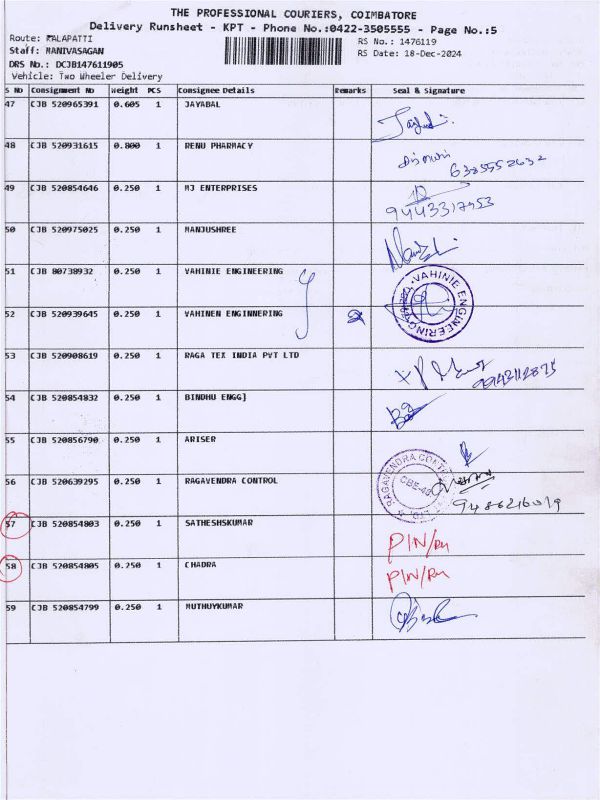 THE PROFESSIONAL COURIERS, COIMBATORE
Delivery Runsheet - KPT - Phone No.:0422-3505555 - Page No.:5
Route: KALAPATTI
RS No.: 1476119
Staff: MANIVASAGAN
RS Date: 18-Dec-2024
DRS No.: DCJB147611905
Vehicle: Two Wheeler Delivery
S No Consignment No Weight PCS Consignee Details Remarks Seal & Signature
47 CJB 520965391 0.605 1 JAYABAL
48 CJB 520931615 0.800 1 RENU PHARMACY
6385552632
49 CJB 520854646 0.250 1 MJ ENTERPRISES
9443317453
50 CJB 520975025 0.250 1 MANJUSHREE
51 CJB 80738932 0.250 1 VAHINIE ENGINEERING
VAHINIE ENGINEERING
52 CJB 520939645 0.250 1 VAHINEN ENGINNERING
53 CJB 520908619 0.250 1 RAGA TEX INDIA PVT LTD
54 CJB 520854832 0.250 1 BINDHU ENGG]
55 CJB 520856790 0.250 1 ARISER
56 CJB 520639295 0.250 1 RAGAVENDRA CONTROL
RAGAVENDRA CONTR
9486216019
57 CJB 520854803 0.250 1 SATHESHSKUMAR
PIN/RU
58 CJB 520854805 0.250 1 CHADRA
PIN/RU
59 CJB 520854799 0.250 1 MUTHUYKUMAR